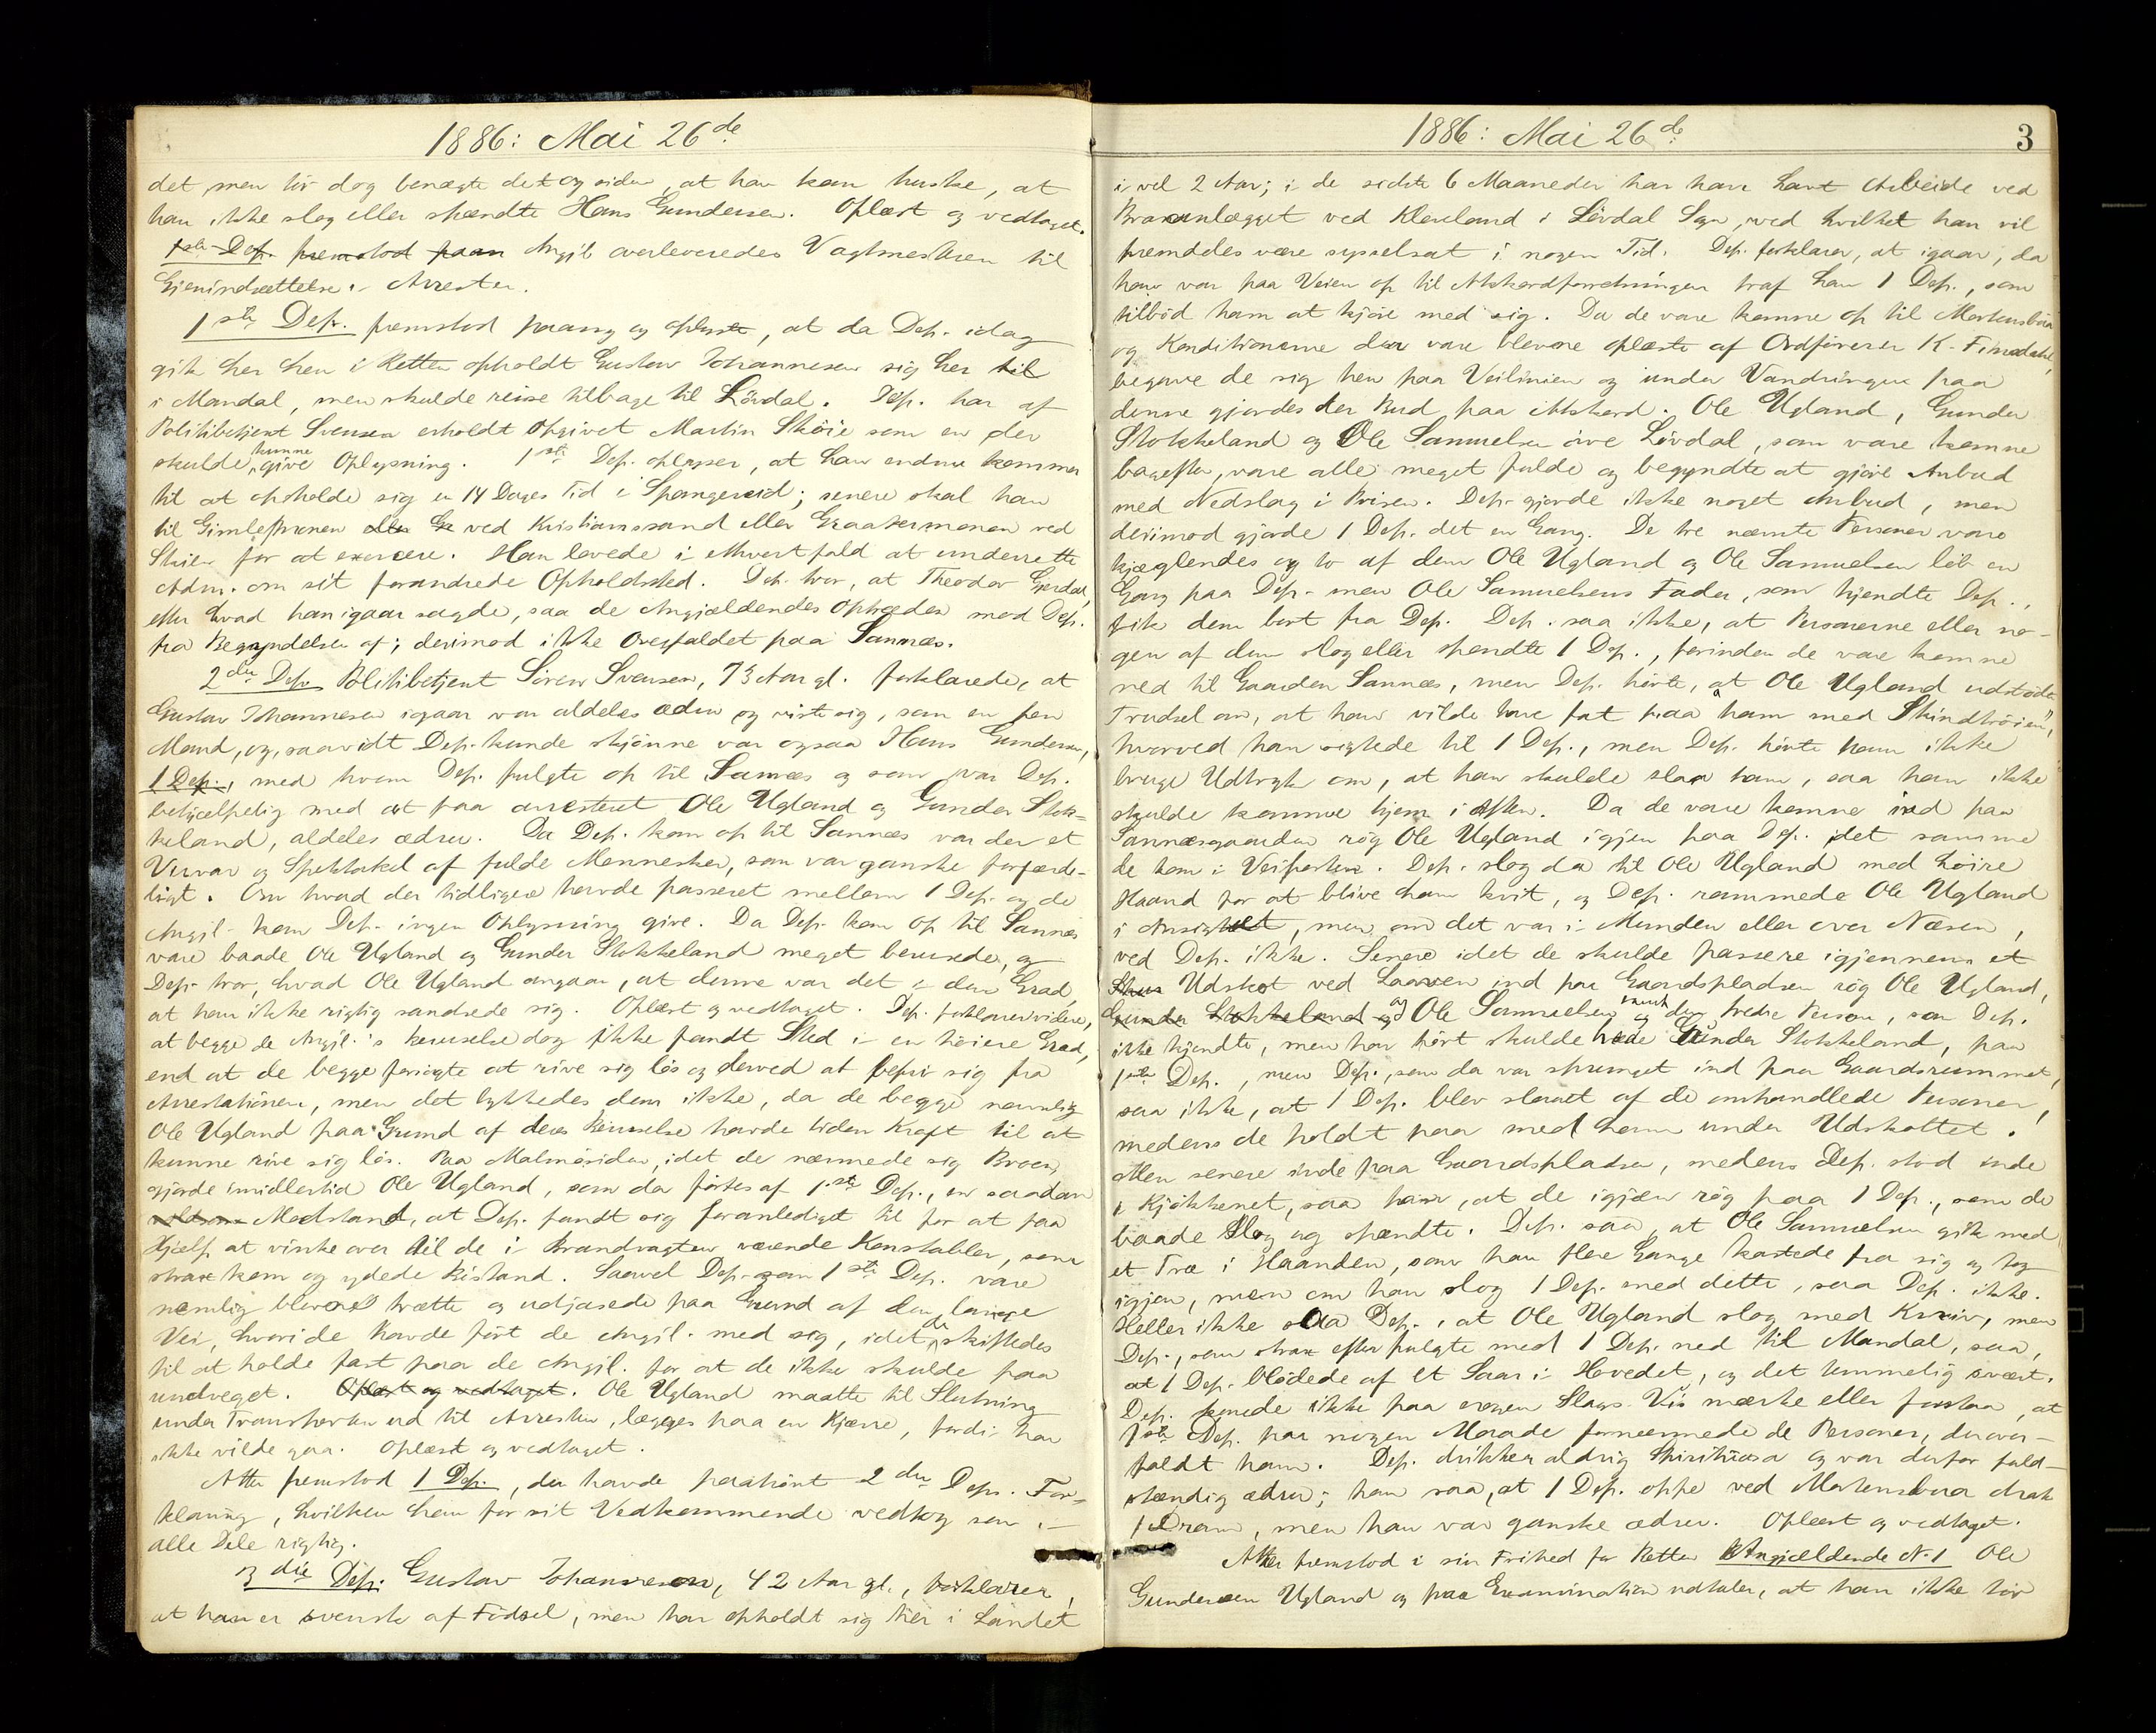 1886: Mai 26de
det, men tør dog benægte det og siden, at han kan huske, at
han ikke slog eller spændte Hans Gundersen. Oplæst og vedtaget.
1ste Dep. fremstod paan Angjb. overleveredes Vagtmesteren til
Gjenindsættelse i Arresten.
1ste Dep. fremstod paany og oplyste, at da Dep. idag
gik her hen i Retten opholdt Gustav Johannesen sig her til
i Mandal, men skulde reise tilbage til Løvdal. Dep. har af
Politibetjent Svensen erholdt opgivet Martin Skøie som en der
skulde kunne give Oplysning. 1ste Dep. oplyser, at han endnu kommer
til at opholde sig en 14 Dages Tid i Spangereid; senere skal han
til Gimlemoen eller Gr ved Kristianssand eller Graatenmoen ved
Skien for at exercere. Han lovede i ethvert fald at underrette
Adm. om sit forandrede Opholdssted. Dep. tror, at Theodor Gjerdal,
efter hvad han igaar sagde, saa de Angjældendes Optræden mod Dep.
fra Begyndelsen af; derimod ikke Overfaldet paa Sannæs.
2den Dep. Politibetjent Søren Svensen, 73 Aar gl. forklarede, at
Gustav Johannesen igaar var aldeles ædru og viste sig, som en pen
Mand, og, saavidt Dep. kunde skjønne var ogsaa Hans Gundersen,
1 Dep., med hvem Dep. fulgte op til Sannæs og som var Dep.
behjælpelig med at faa arresteret Ole Ugland og Gunder Stok-
keland, aldeles ædru. Da Dep. kom op til Sannæs var der et
Virvar og Spektakel af fulde Mennesker, som var ganske forfærde-
ligt. Om hvad der tidligere havde passeret mellem 1 Dep. og de
Angjl. kan Dep. ingen Oplysning give. Da Dep. kom op til Sannæs
vare baade Ole Ugland og Gunder Stokkeland meget berusede, og
Dep. tror, hvad Ole Ugland angaar, at denne var det i den Grad,
at han ikke rigtig sandsede sig. Oplæst og vedtaget. Dep. forklarer videre,
at begge de Angjl.'s beruselse dog ikke fandt Sted i en høiere Grad,
end at de begge forsøgte at rive sig løs og derved at befri sig fra
Arrestationen, men det lykkedes dem ikke, da de begge navnlig
Ole Ugland paa Grund af deres Beruselse havde liden Kraft til at
kunne rive sig løs. Paa Malmøsiden, idet de nærmede sig Broen,
gjorde imidlertid Ole Ugland, som da førtes af 1ste Dep., en saadan
Modstand, at Dep. fandt sig foranlediget til for at faa
Hjælp at vinke over til de i Brandvagten værende Konstabler, som
strax kom og ydede Bistand. Saavel Dep. som 1ste Dep. vare
nemlig blevne trætte og udjasede paa Grund af den lange
Vei, hvori de havde ført de Angjl. med sig, idet de skiftedes
til at holde fast paa de Angjl. for at de ikke skulde faa
undveget. Oplæst og vedtaget. Ole Ugland maatte til Slutning
under Transporten ud til Arresten, lægges paa en Kjærre, fordi han
ikke vilde gaa. Oplæst og vedtaget.
Atter fremstod 1 Dep., der havde paahørt 2den Deps. For-
klaring, hvilken han for sit Vedkommende vedtog som i
alle Dele rigtig.
3die Dep. Gustav Johannesen, 42 Aar gl., forklarer,
at han er svensk af Fødsel, men har opholdt sig her i Landet
1886: Mai 26de
3
i vel 2 Aar; i de sidste 6 Maaneder har han havt Arbeide ved
Broanlægget ved Kleveland i Løvdal Sogn, ved hvilket han vil
fremdeles være sysselsat i nogen Tid. Dep. forklarer, at igaar, da
han var paa Veien op til Akkordforretningen traf han 1 Dep., som
tilbød ham at kjøre med sig. Da de vare komne op til Mortensbua
og Konditionerne der vare blevne oplæste af Ordføreren K. Finsdahl,
begave de sig hen paa Veilinien og under Vandringen paa
denne gjordes der Bud paa Akkord. Ole Ugland, Gunder
Stokkeland og Ole Samuelsen øvre Løvdal, som vare komne
bagefter, vare alle meget fulde og begyndte at gjøre Anbud
med Nedslag i Prisen. Dep. gjorde ikke noget Anbud, men
derimod gjorde 1 Dep. det en Gang. De tre nævnte Personer vare
kjæglendes og to af dem Ole Ugland og Ole Samuelsen løb en
Gang paa Dep. men Ole Samuelsens Fader, som kjendte Dep.,
fik dem bort fra Dep. Dep. saa ikke, at Personerne eller no-
gen af dem slog eller spendte 1 Dep., førinden de vare komne
ned til Gaarden Sannæs, men Dep. hørte, at Ole Ugland udstødte
Trudsel om, at han vilde have fat paa "ham med Skindtrøien",
hvorved han sigtede til 1 Dep., men Dep. hørte ham ikke
bruge Udtryk om, at han skulde slaa ham, saa han ikke
skulde komme hjem i Aften. Da de vare komne ind paa
Sannæsgaarden røg Ole Ugland igjen paa Dep. idet samme
de kom i Veiporten. Dep. slog da til Ole Ugland med høire
Haand for at blive ham kvit, og Dep. rammede Ole Ugland
i Ansigtet, men om det var i Munden eller over Næsen,
ved Dep. ikke. Senere idet de skulde passere igjennem et
Skur Udskot ved Laaven ind paa Gaardspladsen røg Ole Ugland,
Gunder Stokkeland og og Ole Samuelsen samt og den tredie Person, som Dep.
ikke kjendte, men har hørt skulde hede Gunder Stokkeland, paa
1ste Dep., men Dep., som da var sprunget ind paa Gaardsrummet,
saa ikke, at 1 Dep. blev slaaet af de omhandlede Personer,
medens de holdt paa med ham under Udskottet.
Men senere inde paa Gaardspladsen, medens Dep. stod inde
i Kjøkkenet, saa han, at de igjen røg paa 1 Dep., som de
baade slog og spændte. Dep. saa, at Ole Samuelsen gik med
et Træ i Haanden, som han flere Gange kastede fra sig og tog
igjen, men om han slog 1 Dep. med dette, saa Dep. ikke.
Heller ikke saa Dep., at Ole Ugland slog med Kniv, men
Dep., som strax efter fulgte med 1 Dep. ned til Mandal, saa,
at 1 Dep. blødede af et Saar i Hovedet, og det temmelig svært.
Dep. kunde ikke paa nogen Slags Vis mærke eller forstaa, at
1ste Dep. paa nogen Maade fornærmede de Personer, der over-
faldt ham. Dep. drikker aldrig Spirituosa og var derfor fuld-
stændig ædru; han saa, at 1 Dep. oppe ved Mortensbua drak
1 Dram, men han var ganske ædru. Oplæst og vedtaget.
Atter fremstod i sin Frihed for Retten Angjældende No. 1 Ole
Gundersen Ugland og paa Examination udtaler, at han ikke tør